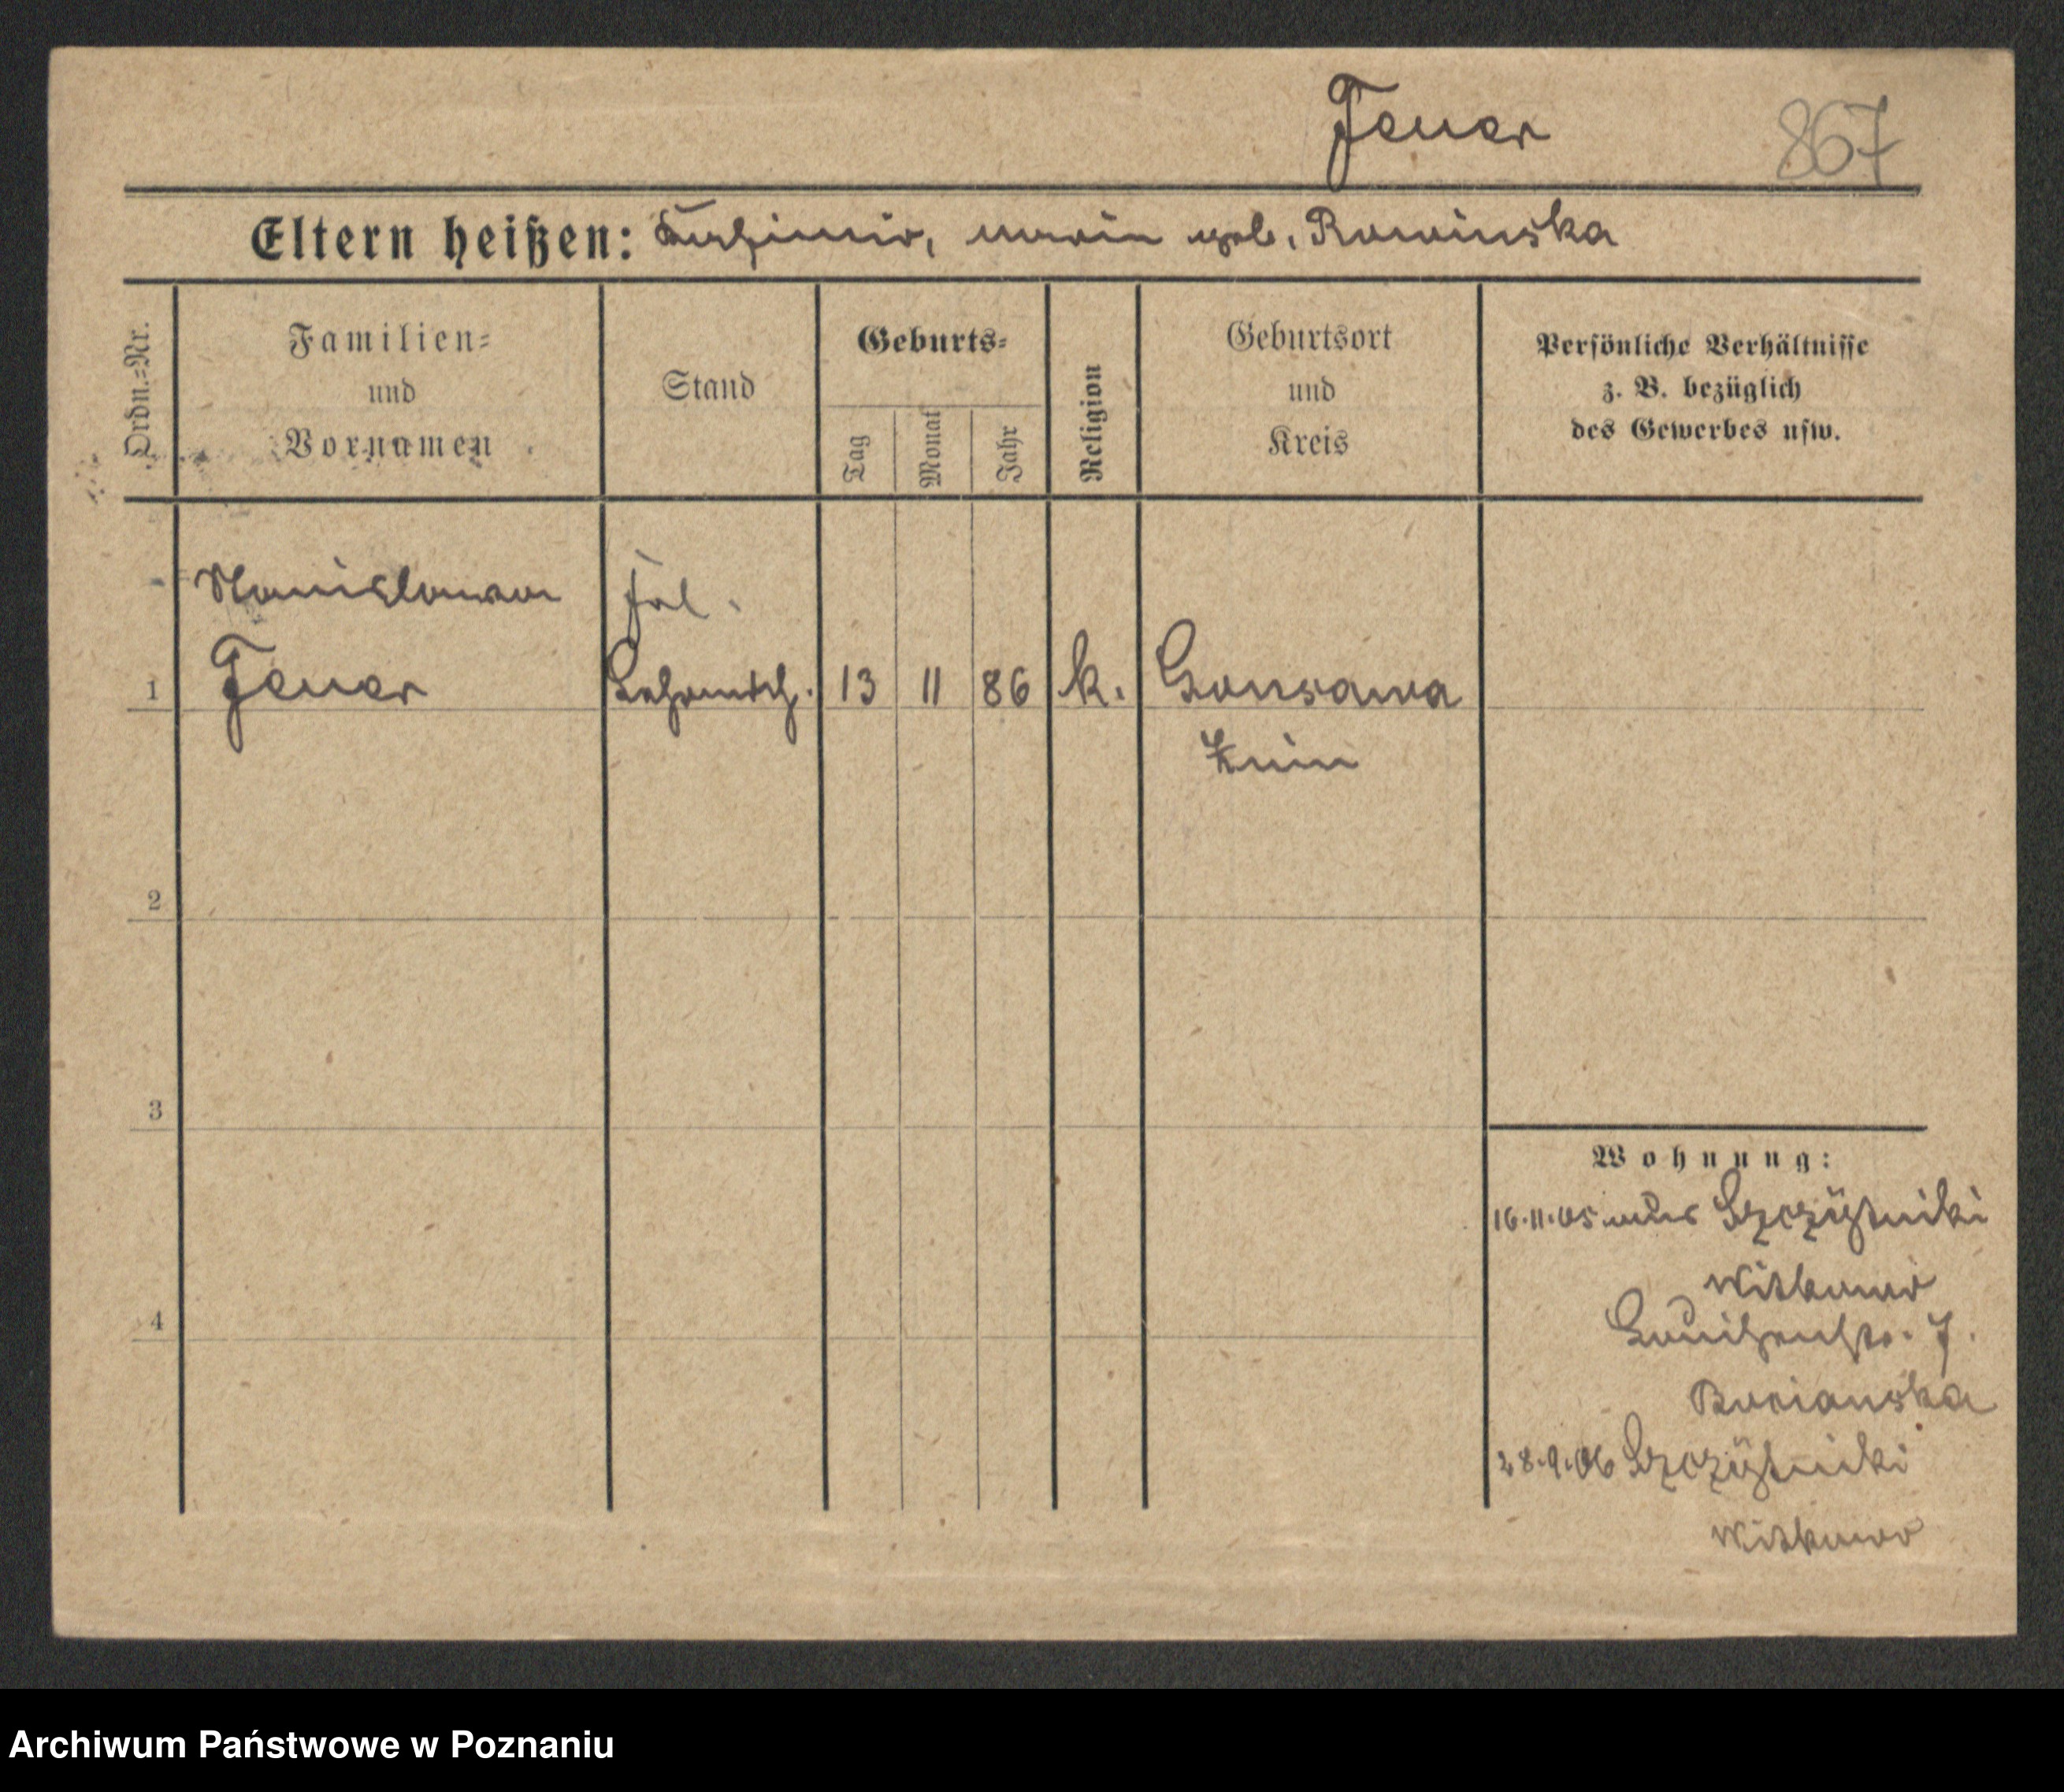 Feuer 867
Eltern heißen: Kasimir, Maria geb. Rowinska
Ordn.=Nr.
Familien=
und
Vornamen
Stand
Geburts=
Tag
Monat
Jahr
Religion
Geburtsort
und
Kreis
Persönliche Verhältnisse
z. B. bezüglich
des Gewerbes usw.
Stanislawa
1 Feuer 13 11 86 k. Gonsawa
Znin
2
3
4
Wohnung:
16.11.05 aus Szczÿtniki
Witkowo
Louisenstr. 7.
Bocianska
28.9.06 Szczÿtniki
Witkowo
Archiwum Państwowe w Poznaniu